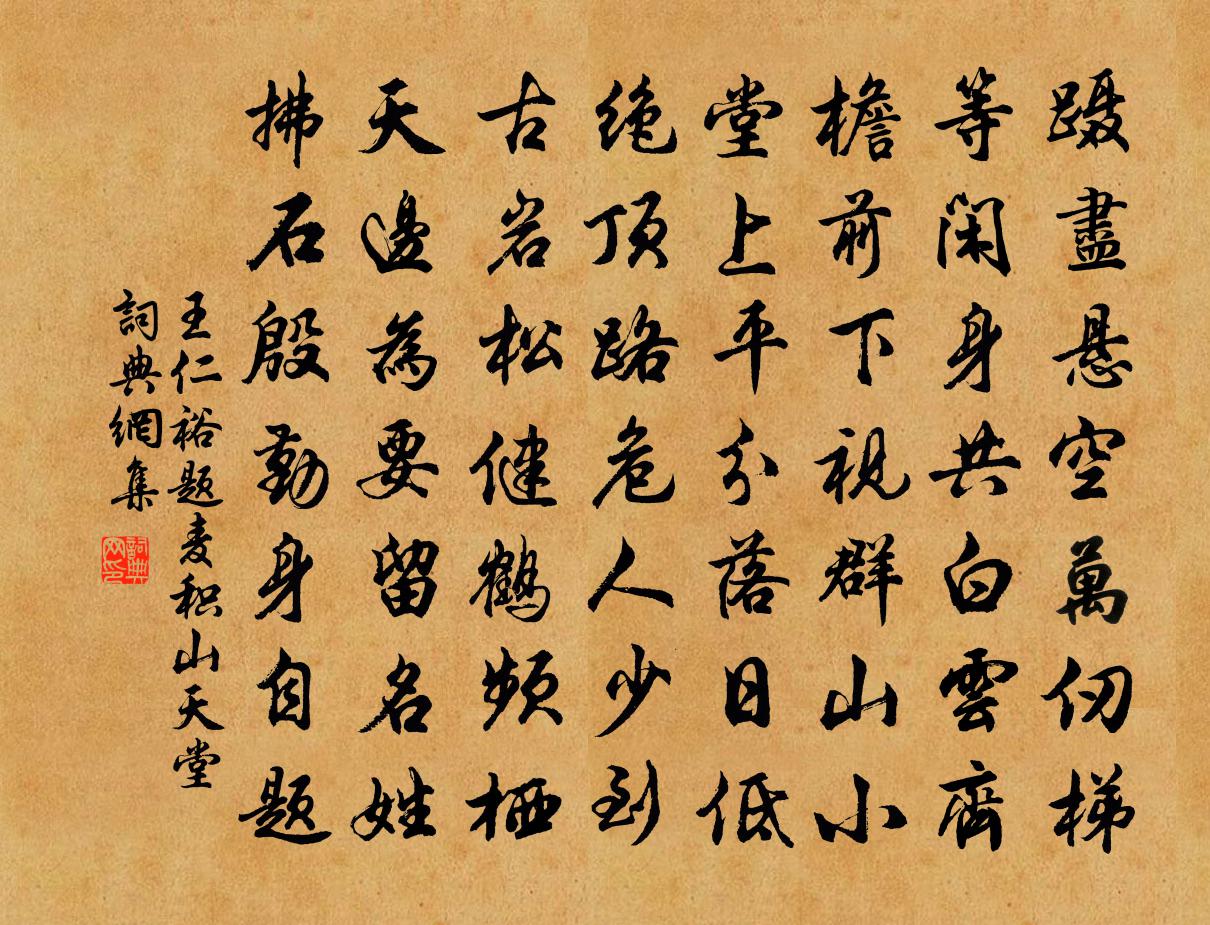 蹑盡悬空萬仞梯
等闲身共白雲齊
檐前下視群山小
堂上平分落日低
绝顶路危人少到
古岩松健鹤频栖
天邊為要留名姓
拂石殷勤身自题
王仁裕题麦积山天堂
詞典網集
詞典网印